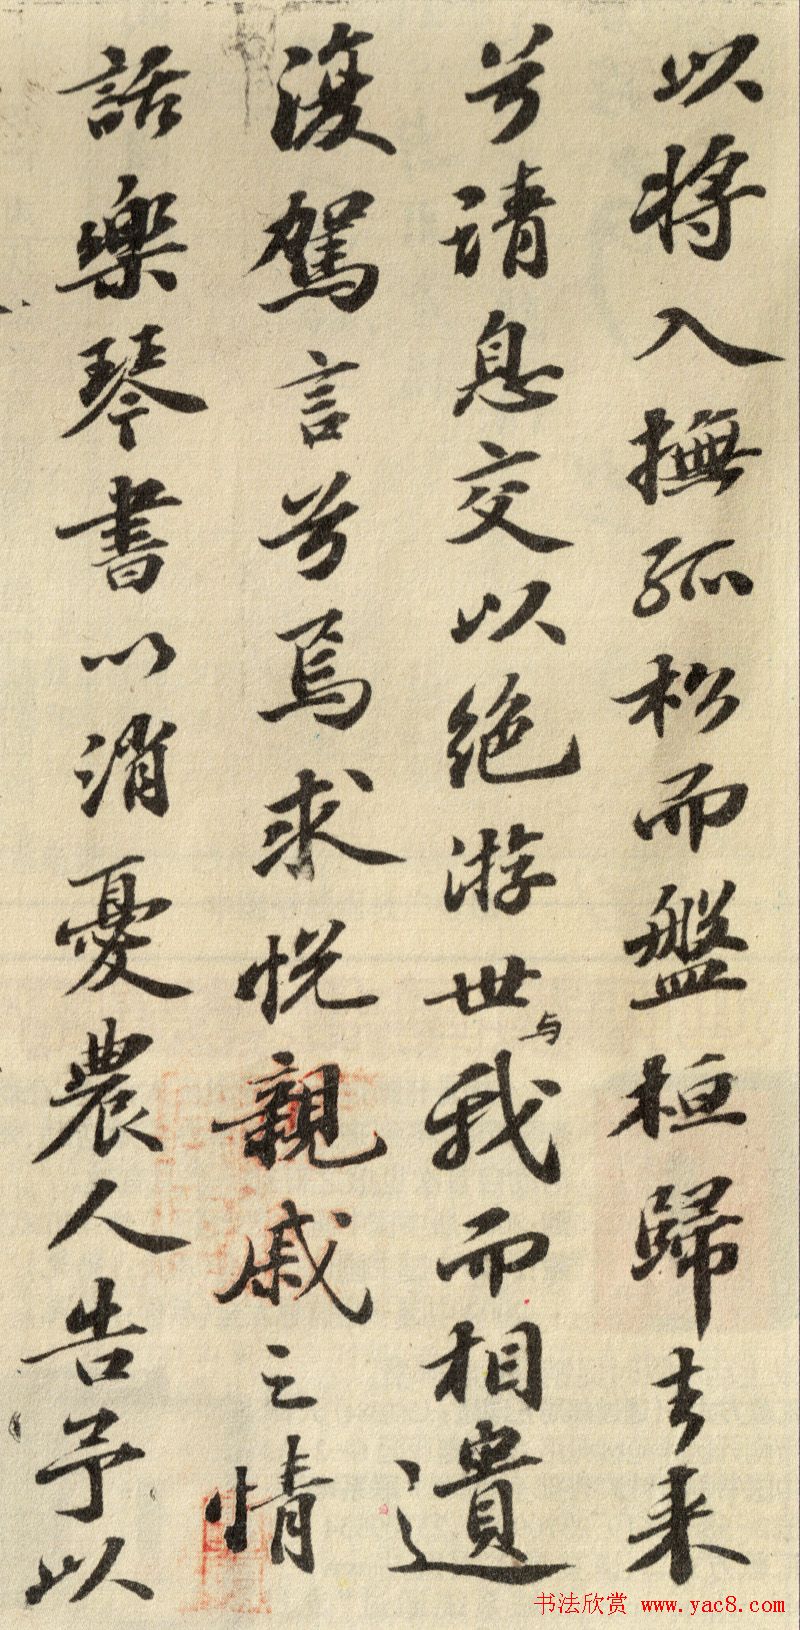 以将入撫孤松而盤桓歸去来
兮請息交以絶游世与我而相遺
復駕言兮焉求悦親戚之情
話樂琴書以消憂農人告予以
书法欣赏 www.yac8.com